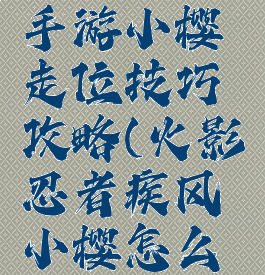 手游小樱
走位技巧
攻略(火影
忍者疾风
小樱怎么